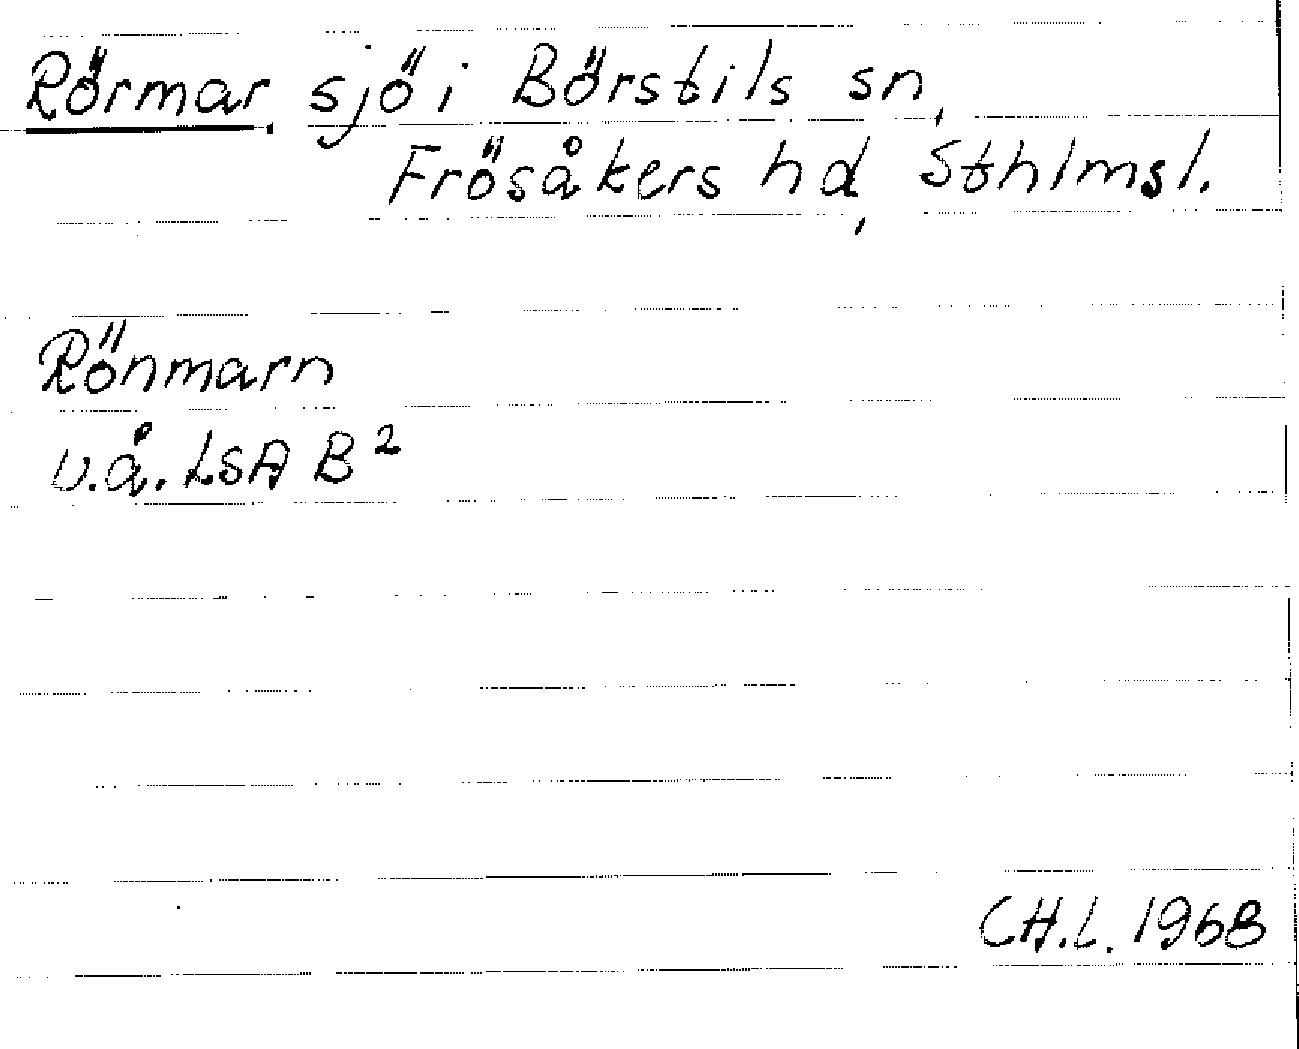 Rörmar, sjö i Börstils sn,
Frösåkers hd, Sthlmsl.
Rönmarn
u.å. LSA B²
CH.L. 1968